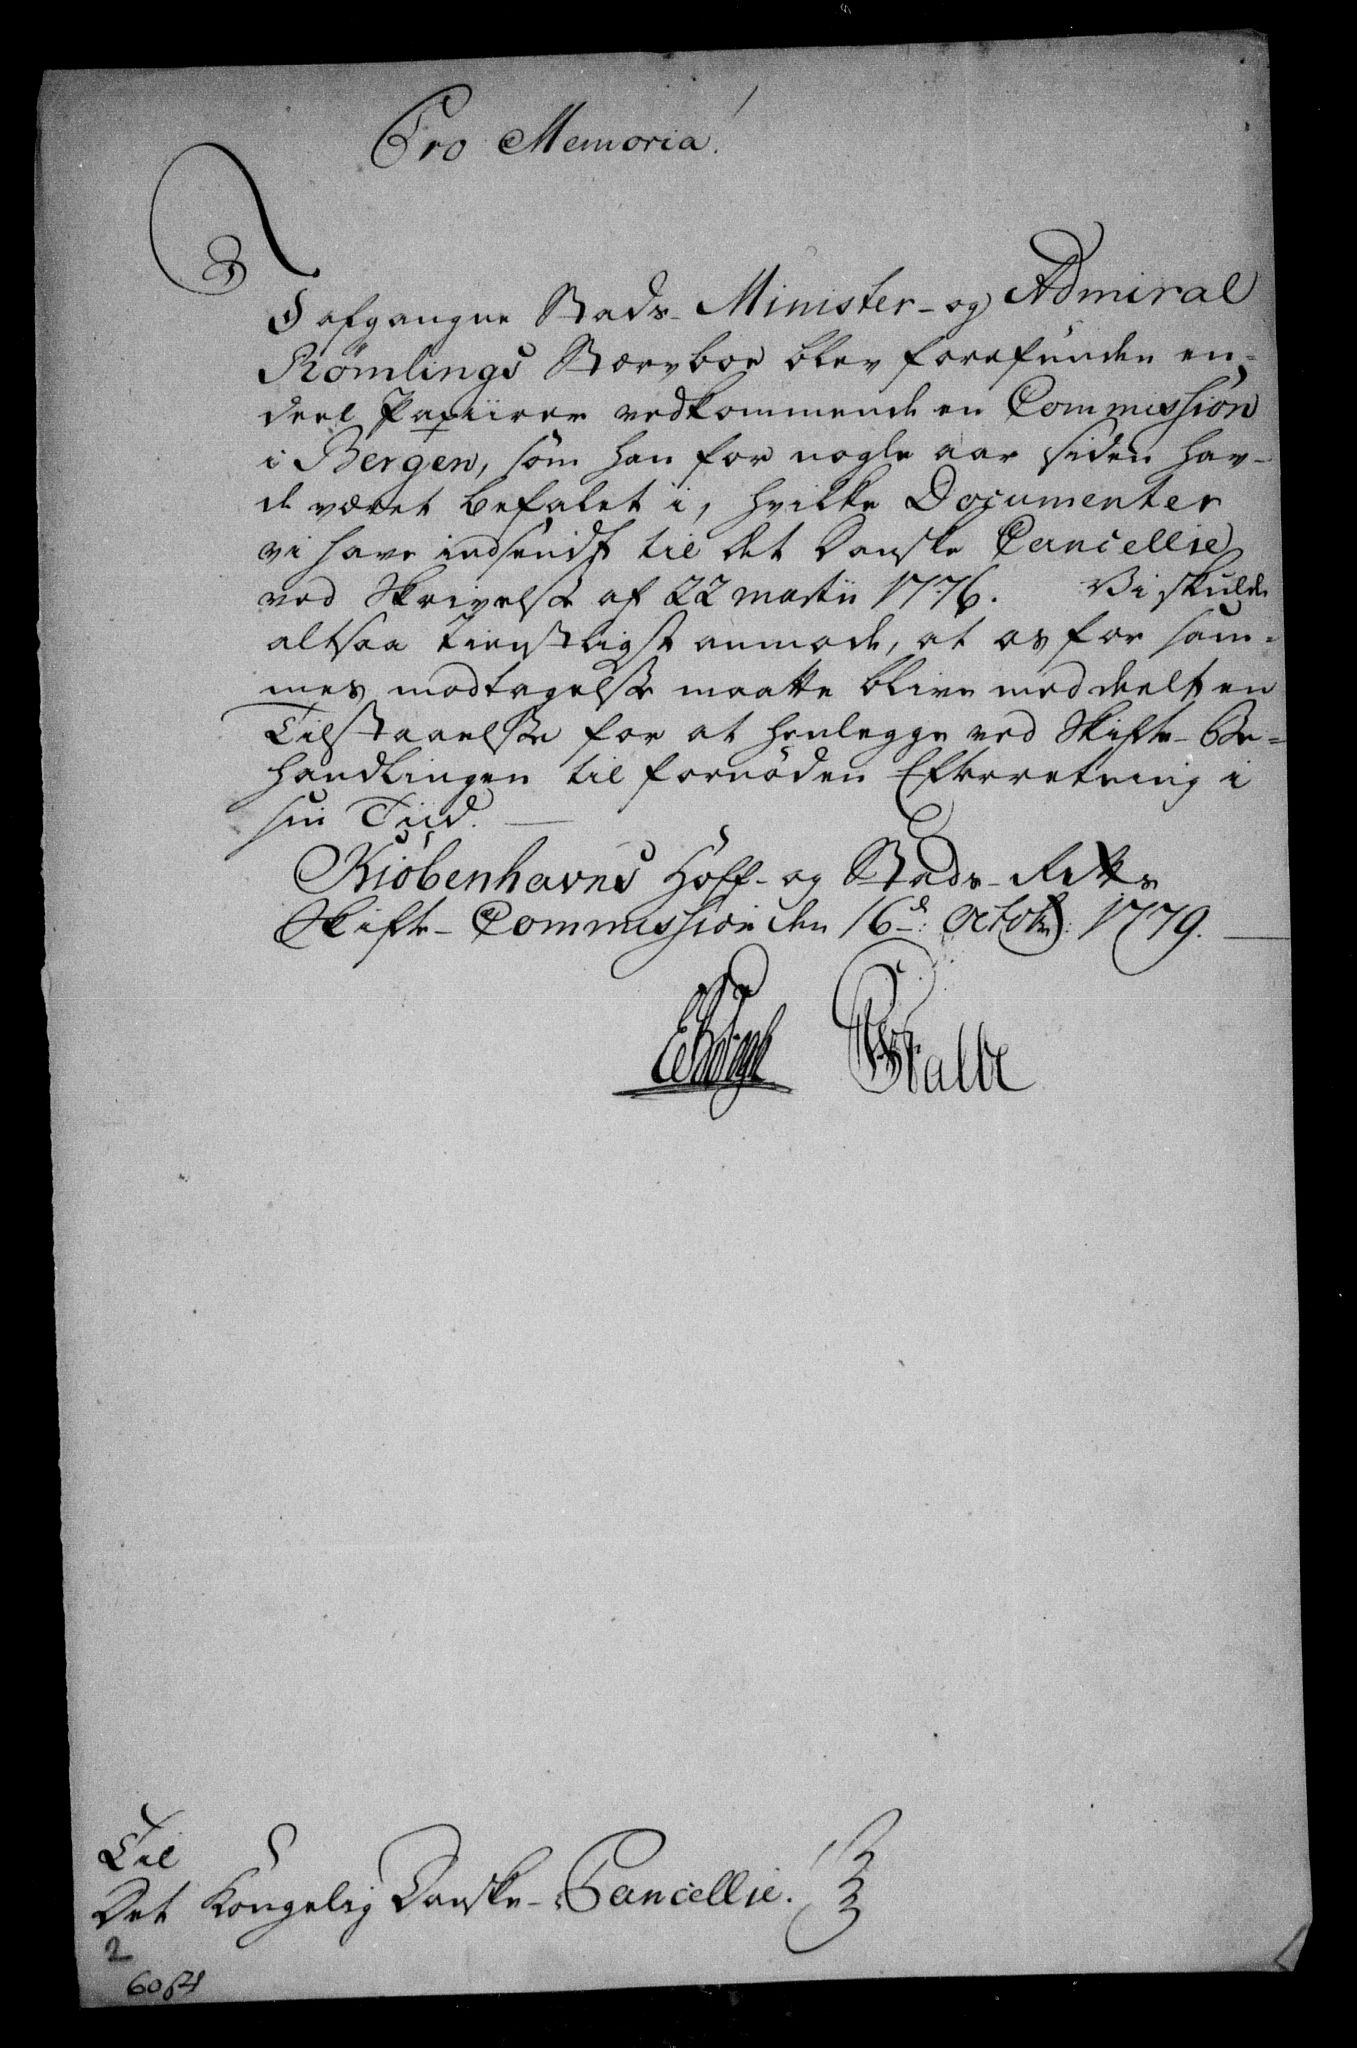 Pro Memoria!
I afgangne Stads- Minister- og Admiral
Römlings Stærvboe blev forefunden en-
deel Papiirer vedkommende en Commission
i Bergen, som han for nogle aar siden hav-
de været befalet i, hvilke Documenter
vi have indsendt til det Danske Cancellie
ved Skrivelse af 22 Martii 1776. Vi skulde
altsaa tienstligst anmode, at os for sam-
mes modtagelse maatte blive meddeelt en
Tilstaaelse for at henlegge ved Skifte-Be-
handlingen til fornöden Efterretning i
sin Tiid.
Kiöbenhavns Hoff- og Stads-Retts
Skifte-Commission den 16d: Octobr: 1779.
Til
Det Kongelig Danske-Cancellie!
2